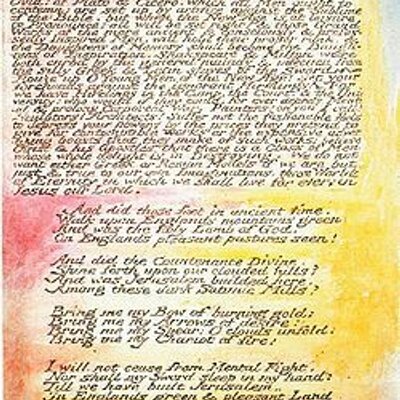 Ovid: of Plato & Cicero, which all Men ought to
contemn: are set up by artifice against the Sublime
of the Bible. but when the New Age is at leisure
to Pronounce; all will be set right: & those Grand
Works of the more ancient & consciously & professedly
Inspired Men, will hold their proper rank, &
the Daughters of Memory shall become the Daugh-
-ters of Inspiration. Shakspeare & Milton were both
curbd by the general malady & infection from the
silly Greek & Latin slaves of the Sword.
Rouze up O Young Men of the New Age! set your
foreheads against the ignorant Hirelings! For
we have Hirelings in the Camp, the Court, & the Uni-
-versity: who would if they could, for ever depress
Mental & prolong Corporeal War. Painters! on you I call!
Sculptors! Architects! Suffer not the fashionable Fools
to depress your powers by the prices they pretend to
give for contemptible works or the expensive adver-
-tizing boasts that they make of such works; believe
Christ & his Apostles that there is a Class of Men
whose whole delight is in Destroying. We do not
want either Greek or Roman Models if we are but
just & true to our own Imaginations, those Worlds
of Eternity in which we shall live for ever; in
Jesus our Lord.
And did those feet in ancient time,
Walk upon Englands mountains green:
And was the holy Lamb of God,
On Englands pleasant pastures seen!
And did the Countenance Divine,
Shine forth upon our clouded hills?
And was Jerusalem builded here,
Among these dark Satanic Mills?
Bring me my Bow of burning gold:
Bring me my Arrows of desire:
Bring me my Spear: O clouds unfold:
Bring me my Chariot of fire!
I will not cease from Mental Fight,
Nor shall my Sword sleep in my hand:
Till we have built Jerusalem,
In Englands green & pleasant Land